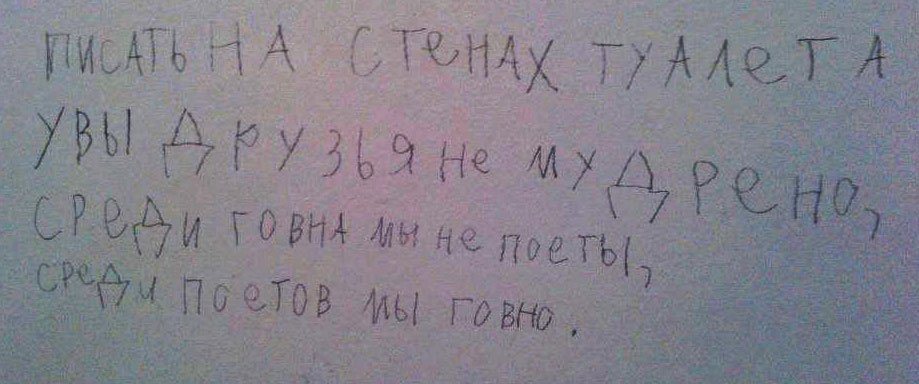 ПИСАТЬ НА СТЕНАХ ТУАЛЕТА
УВЫ ДРУЗЬЯ НЕ МУДРЕНО,
СРЕДИ ГОВНА МЫ НЕ ПОЕТЫ,
СРЕДИ ПОЕТОВ МЫ ГОВНО.